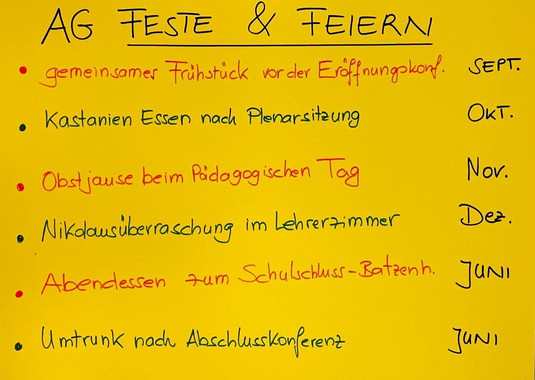 AG FESTE & FEIERN
• gemeinsamer Frühstück vor der Eröffnungskonf. SEPT.
• Kastanien Essen nach Plenarsitzung OKT.
• Obstjause beim Pädagogischen Tag Nov.
• Nikolausüberraschung im Lehrerzimmer Dez.
• Abendessen zum Schulschluss-Batzenh. JUNI
• Umtrunk nach Abschlusskonferenz JUNI